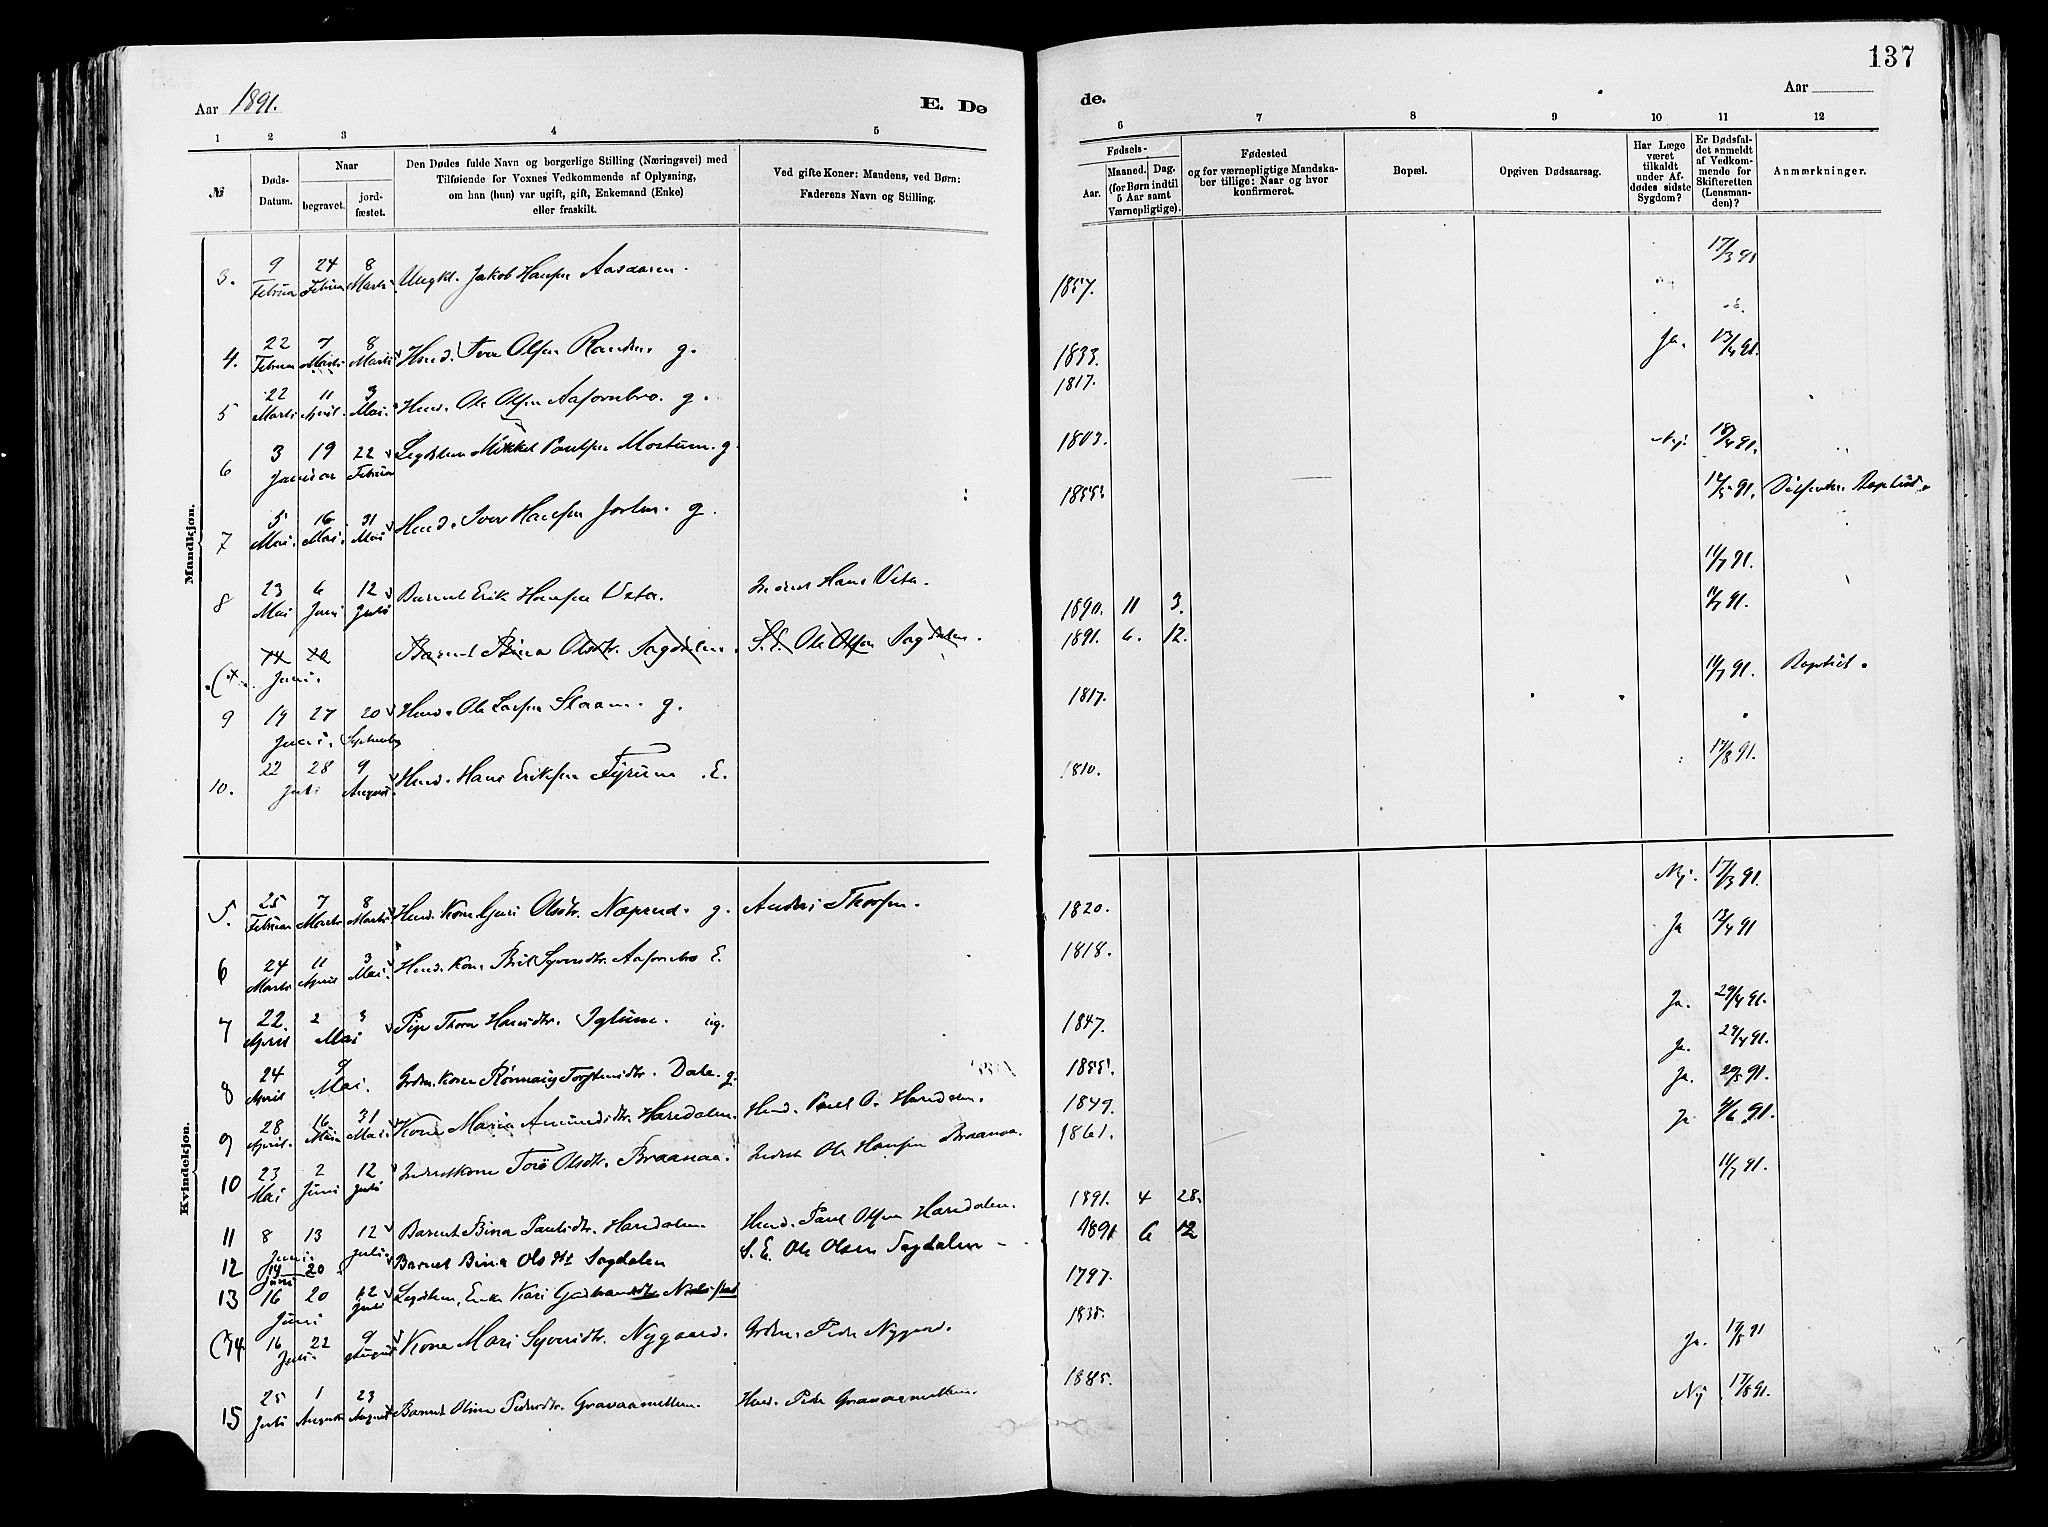 137
Aar 1891.
E. Dø
de.
Aar
1 2 3 4 5 6 7 8 9 10 11 12
№
Døds-Datum.
Naar
begravet.
jord-fæstet.
Den Dødes fulde Navn og borgerlige Stilling (Næringsvei) med
Tilføiende for Voxnes Vedkommende af Oplysning,
om han (hun) var ugift, gift, Enkemand (Enke)
eller fraskilt.
Ved gifte Koner: Mandens, ved Børn:
Faderens Navn og Stilling.
Fødsels-
Aar.
Maaned.
Dag.
(for Børn indtil
5 Aar samt
Værnepligtige).
Fødested
og for værnepligtige Mandska-
ber tillige: Naar og hvor
konfirmeret.
Bopæl.
Opgiven Dødsaarsag.
Har Læge
været
tilkaldt
under Af-
dødes sidste
Sygdom?
Er Dødsfal-
det anmeldt
af Vedkom-
mende for
Skifteretten
(Lensman-
den)?
Anmærkninger.
Mandkjøn.
3. 9 Februar 24 Februar 8 Marts Ungkl. Jakob Hansen Aasaaren. 1857. 17/3 91
4. 22 Februar 7 Marts 8 Marts Husmd. Iver Olsen g. 1833. Ja. 13/4 91.
5 22 Marts 11 April 3 Mai. Husmd. Ole Olsen g. 1817.
6 3 19 Januar 22 Februar Lægdslem Mikkel Paulsen g. 1803. Nej. 18/4 91.
7 5 Mai. 16 Mai. 31 Mai Husmd. Iver Hansen g. 1855. 12/5 91. Dissenter. Baptist.
8 23 Mai 6 Juni 12 Juli Barnet Erik Hansen Veta. Inderst Hans Veta. 1890. 11 3. 11/7 91.
14 20 Juni. Barnet Bina Olsdtr. Sagdalen. S. E. Ole Olsen Sagdalen. 1891. 6. 12. 11/7 91.
9 19 27 Juni. 20 September Husmd. Ole Larsen g. 1817. 11/7 91. Baptist.
10. 22 28 Juli 9 August. Husmd. Hans Eriksen E. 1810. 17/8 91.
Kvindekjøn.
5. 25 Februar 7 Marts 8 Marts Husmd. Kone Guri Olsdtr. Næprud. g. Anders Thorsen. 1820. Nej. 17/3 91.
6 24 Marts 11 April 3 Mai. Husmd. Kone Brit Syversdtr. E. 1818. Ja 13/4 91
7 22. April 2 3 Mai Pige Thora Hansdtr. ug. 1847. Ja. 29/4 91.
8 24 April 9 Mai. Grdm. Kone Rønnaug Torstensdtr. Dale. g. 1855. Ja. 29/4 91.
9 28 April. 16 Mai 31 Mai Kone Maria Amundsdtr. Haredalen. Husmd. Paul O. Haredalen. 1849. Ja. 20/5 91.
10 23 Mai 2 Juni 12 Juli Inderstkone Toro Olsdtr. Braanaa. Inderst Ole Hansen Braanaa. 1861. Ja 4/6 91.
11 8 13 Juni. 12 Juli Barnet Bina Paulsdtr. Haredalen. Husmd. Paul Olsen Haredalen. 1891. 4 28. 11/7 91.
12 14 20 Juni Barnet Bina Olsdtr Sagdalen S. E. Ole Olsen Sagdalen 1891 6 12
13 16 20 Juni 12 Juli Lægdslem, Enke Kari 1797.
14 16 22 Juli. 9 August Kone Mari Syversdtr. Nygaard. Grdm. Peder Nygaard. 1838. Ja. 17/8 91
15 25 Juli 1 August 23 August Barnet Oline Pedersdtr. Husmd. Peder 1885. Nej 17/8 91.